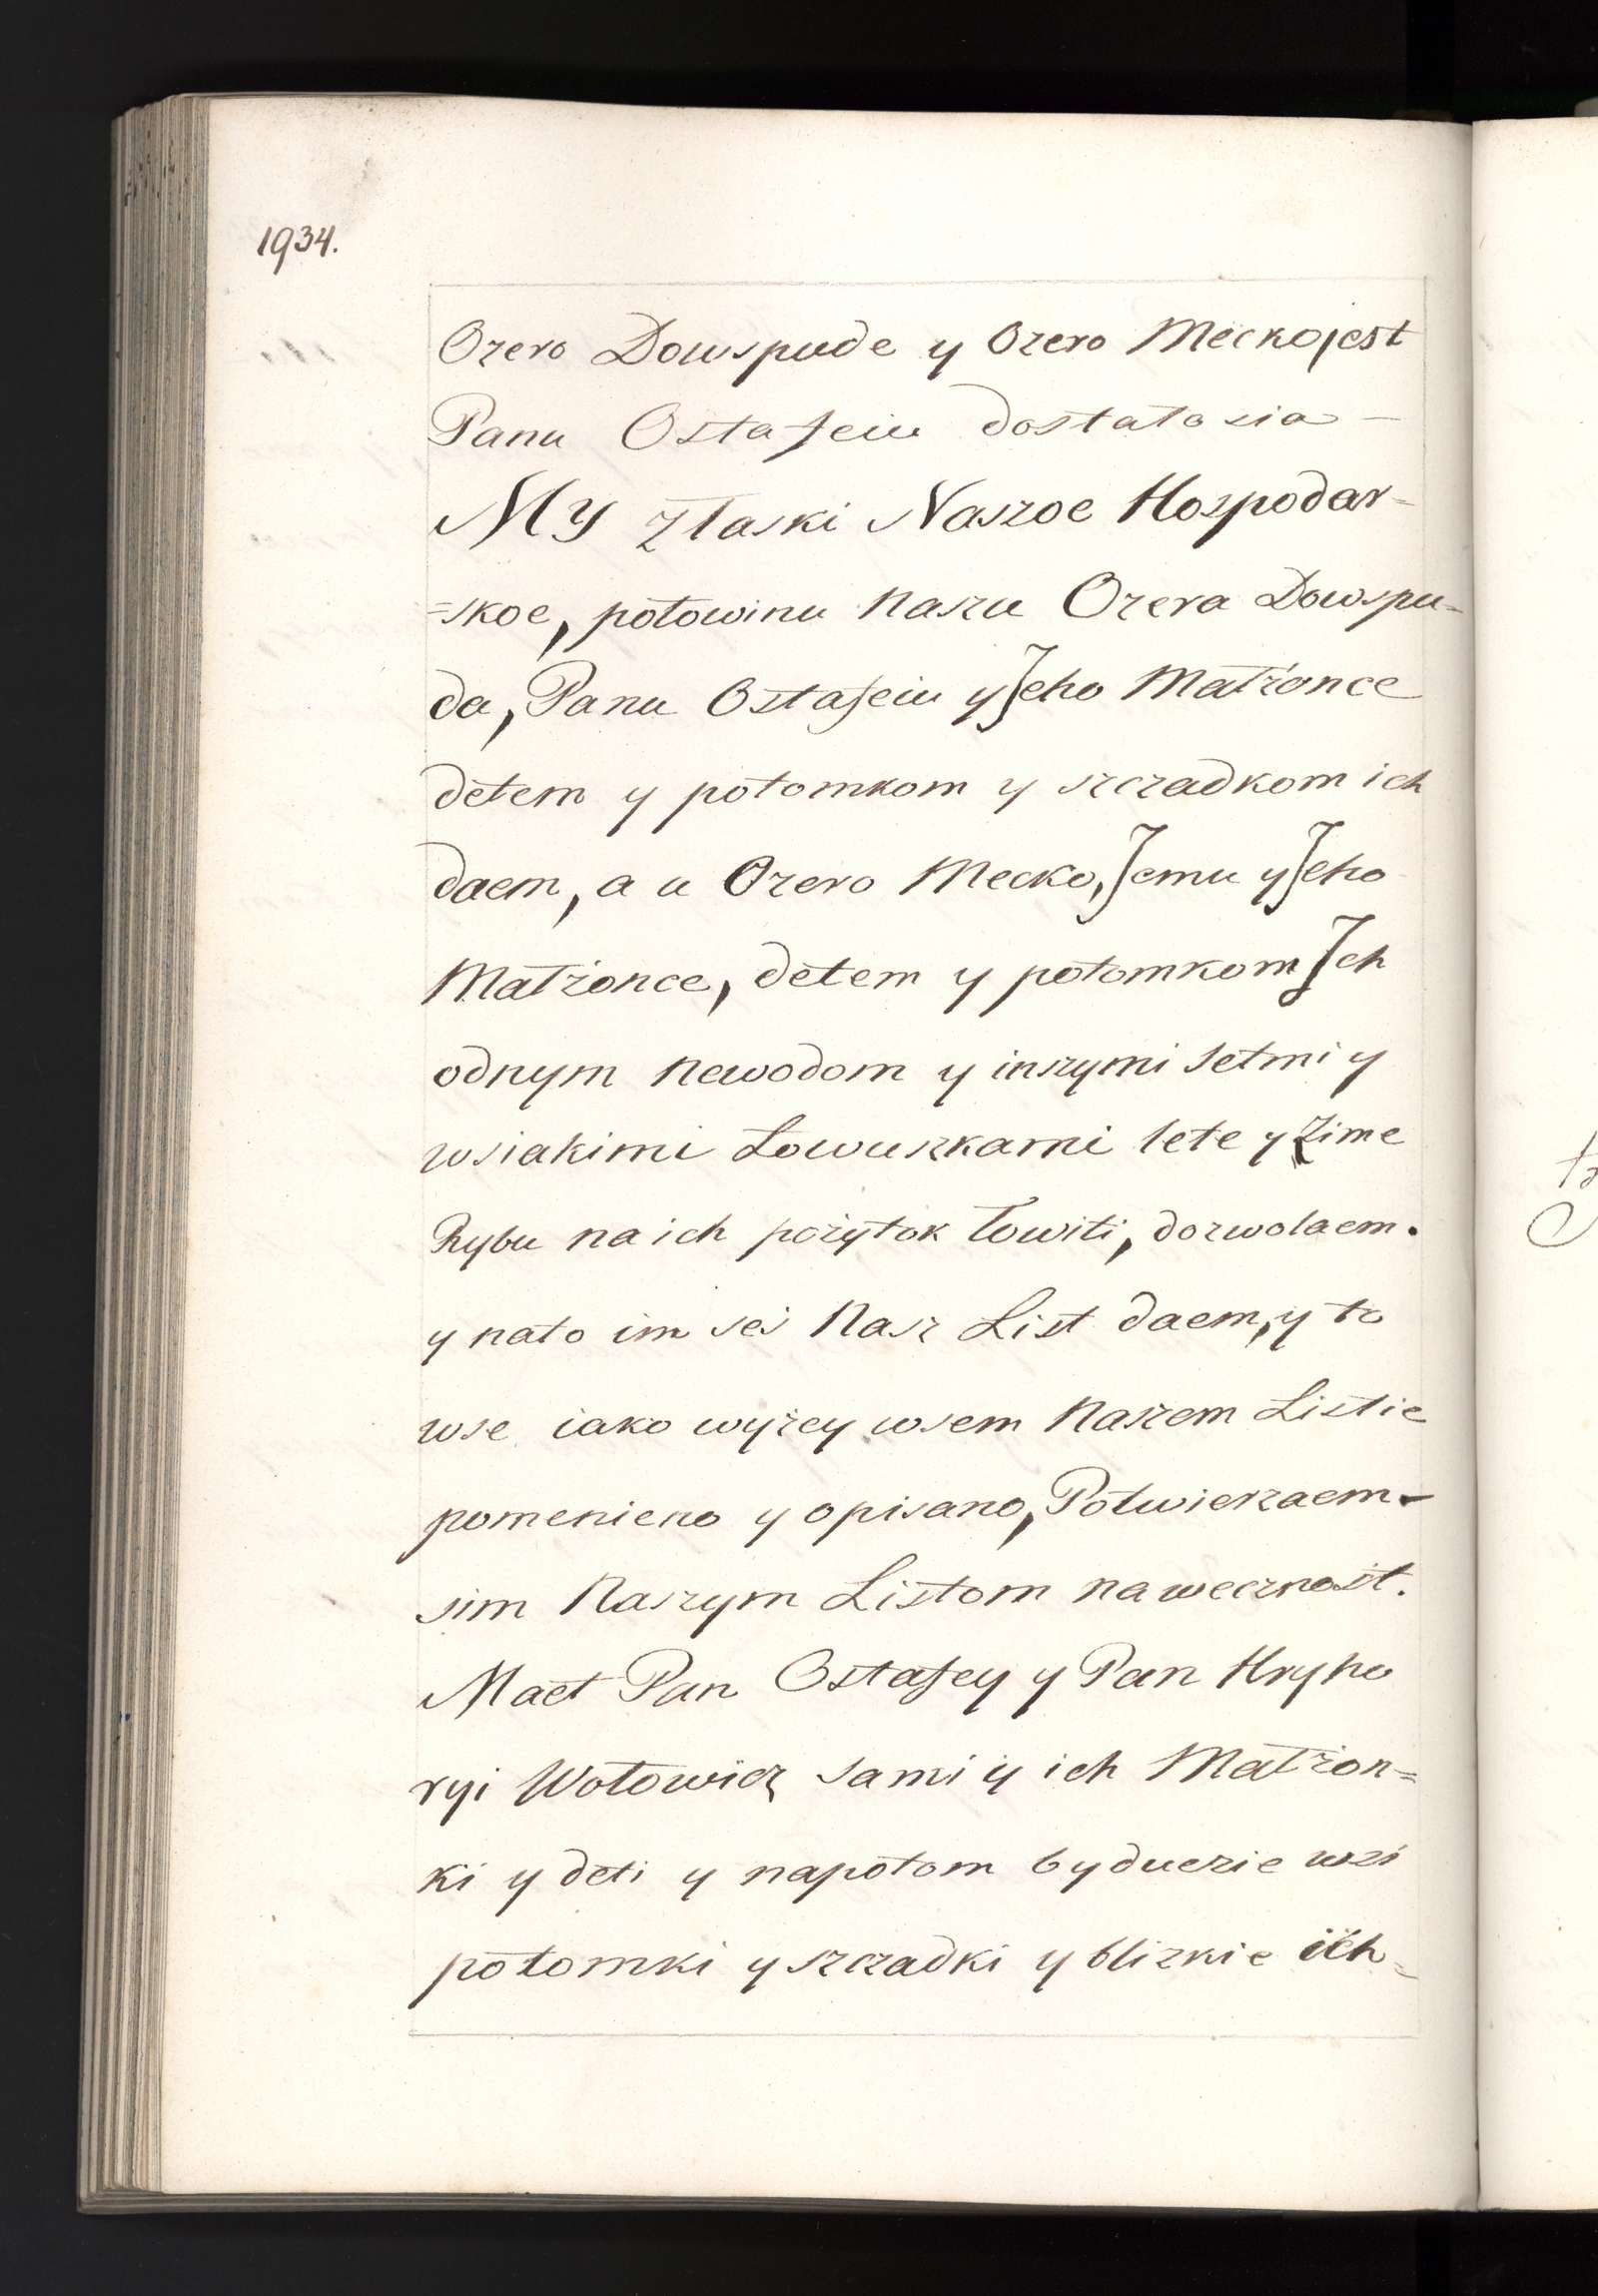 1934.
Ozero Dowspude y Ozero Mecko jest
Panu Ostafeiu dostało sia —
My z łaski Naszoe Hospodar-
=skoe, połowinu naszu Ozera Dowspu-
da, Panu Ostafeiu y Jeho Małżonce
detem y potomkom y szczadkom ich
daem, a u Ozero Mecko, Jemu y Jeho
Małżonce, detem y potomkom Ich
odnym newodom y inszymi setmi y
wsiakimi Łowuszkami lete y Zime
Rybu na ich pożytok łowiti, dozwolaem.
y nato im sei Nasz List daem, y to
wse iako wyżey wsem Naszem Listie
pomenieno y opisano, Potwierzaem
sim Naszym Listom na wecznost.
Maet Pan Ostafey y Pan Hryho
ryi Wołowicz sami y ich Małżon=
ki y deti y napotom byduczie wsi
potomki y szczadki y blizkie ich=